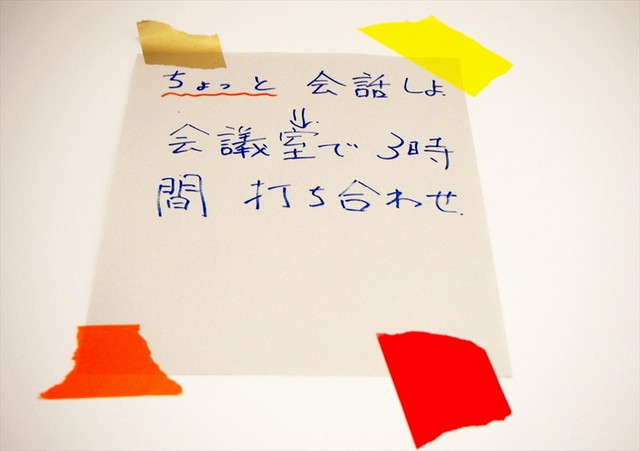 ちょっと 会話しよ
⇓
会議室で 3時
間 打ち合わせ.